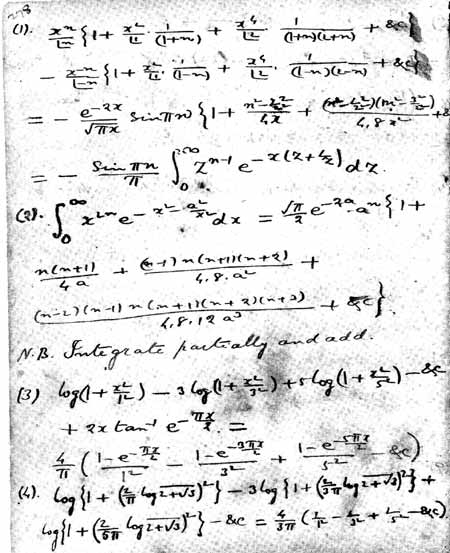 278
(1). x^n/∟n {1 + x²/∟1 · 1/(1+n) + x⁴/∟2 · 1/(1+n)(2+n) + &c}
− x^-n/∟-n {1 + x²/∟1 · 1/(1-n) + x⁴/∟2 · 1/(1-n)(2-n) + &c}
= − e^-2x/√πx Sin πn {1 + (n² - 1²/2²)/4x + (n² - 1²/2²)(n² - 3²/2²)/4,8x² + &
= − Sin πn/π ∫₀^∞ z^n-1 e^-x(z+1/z) dz.
(2). ∫₀^∞ x^2n e^-x²-a²/x² dx = √π/2 e^-2a a^n {1 +
n(n+1)/4a + (n-1)n(n+1)(n+2)/4,8.a² +
(n-2)(n-1)n(n+1)(n+2)(n+3)/4,8,12 a³ + &c}.
N.B. Integrate partially and add.
(3) log(1+x²/1²) − 3log(1+x²/3²) + 5log(1+x²/5²) − &c
+ 2x tan⁻¹ e^-πx/2 =
4/π (1-e^-πx/2/1² − 1-e^-3πx/2/3² + 1-e^-5πx/2/5² − &c)
(4). log{1 + (2/π log 2+√3)²} − 3log{1 + (2/3π log 2+√3)²} +
log{1 + (2/5π log 2+√3)²} − &c = 4/3π (1/1² − 1/3² + 1/5² − &c).